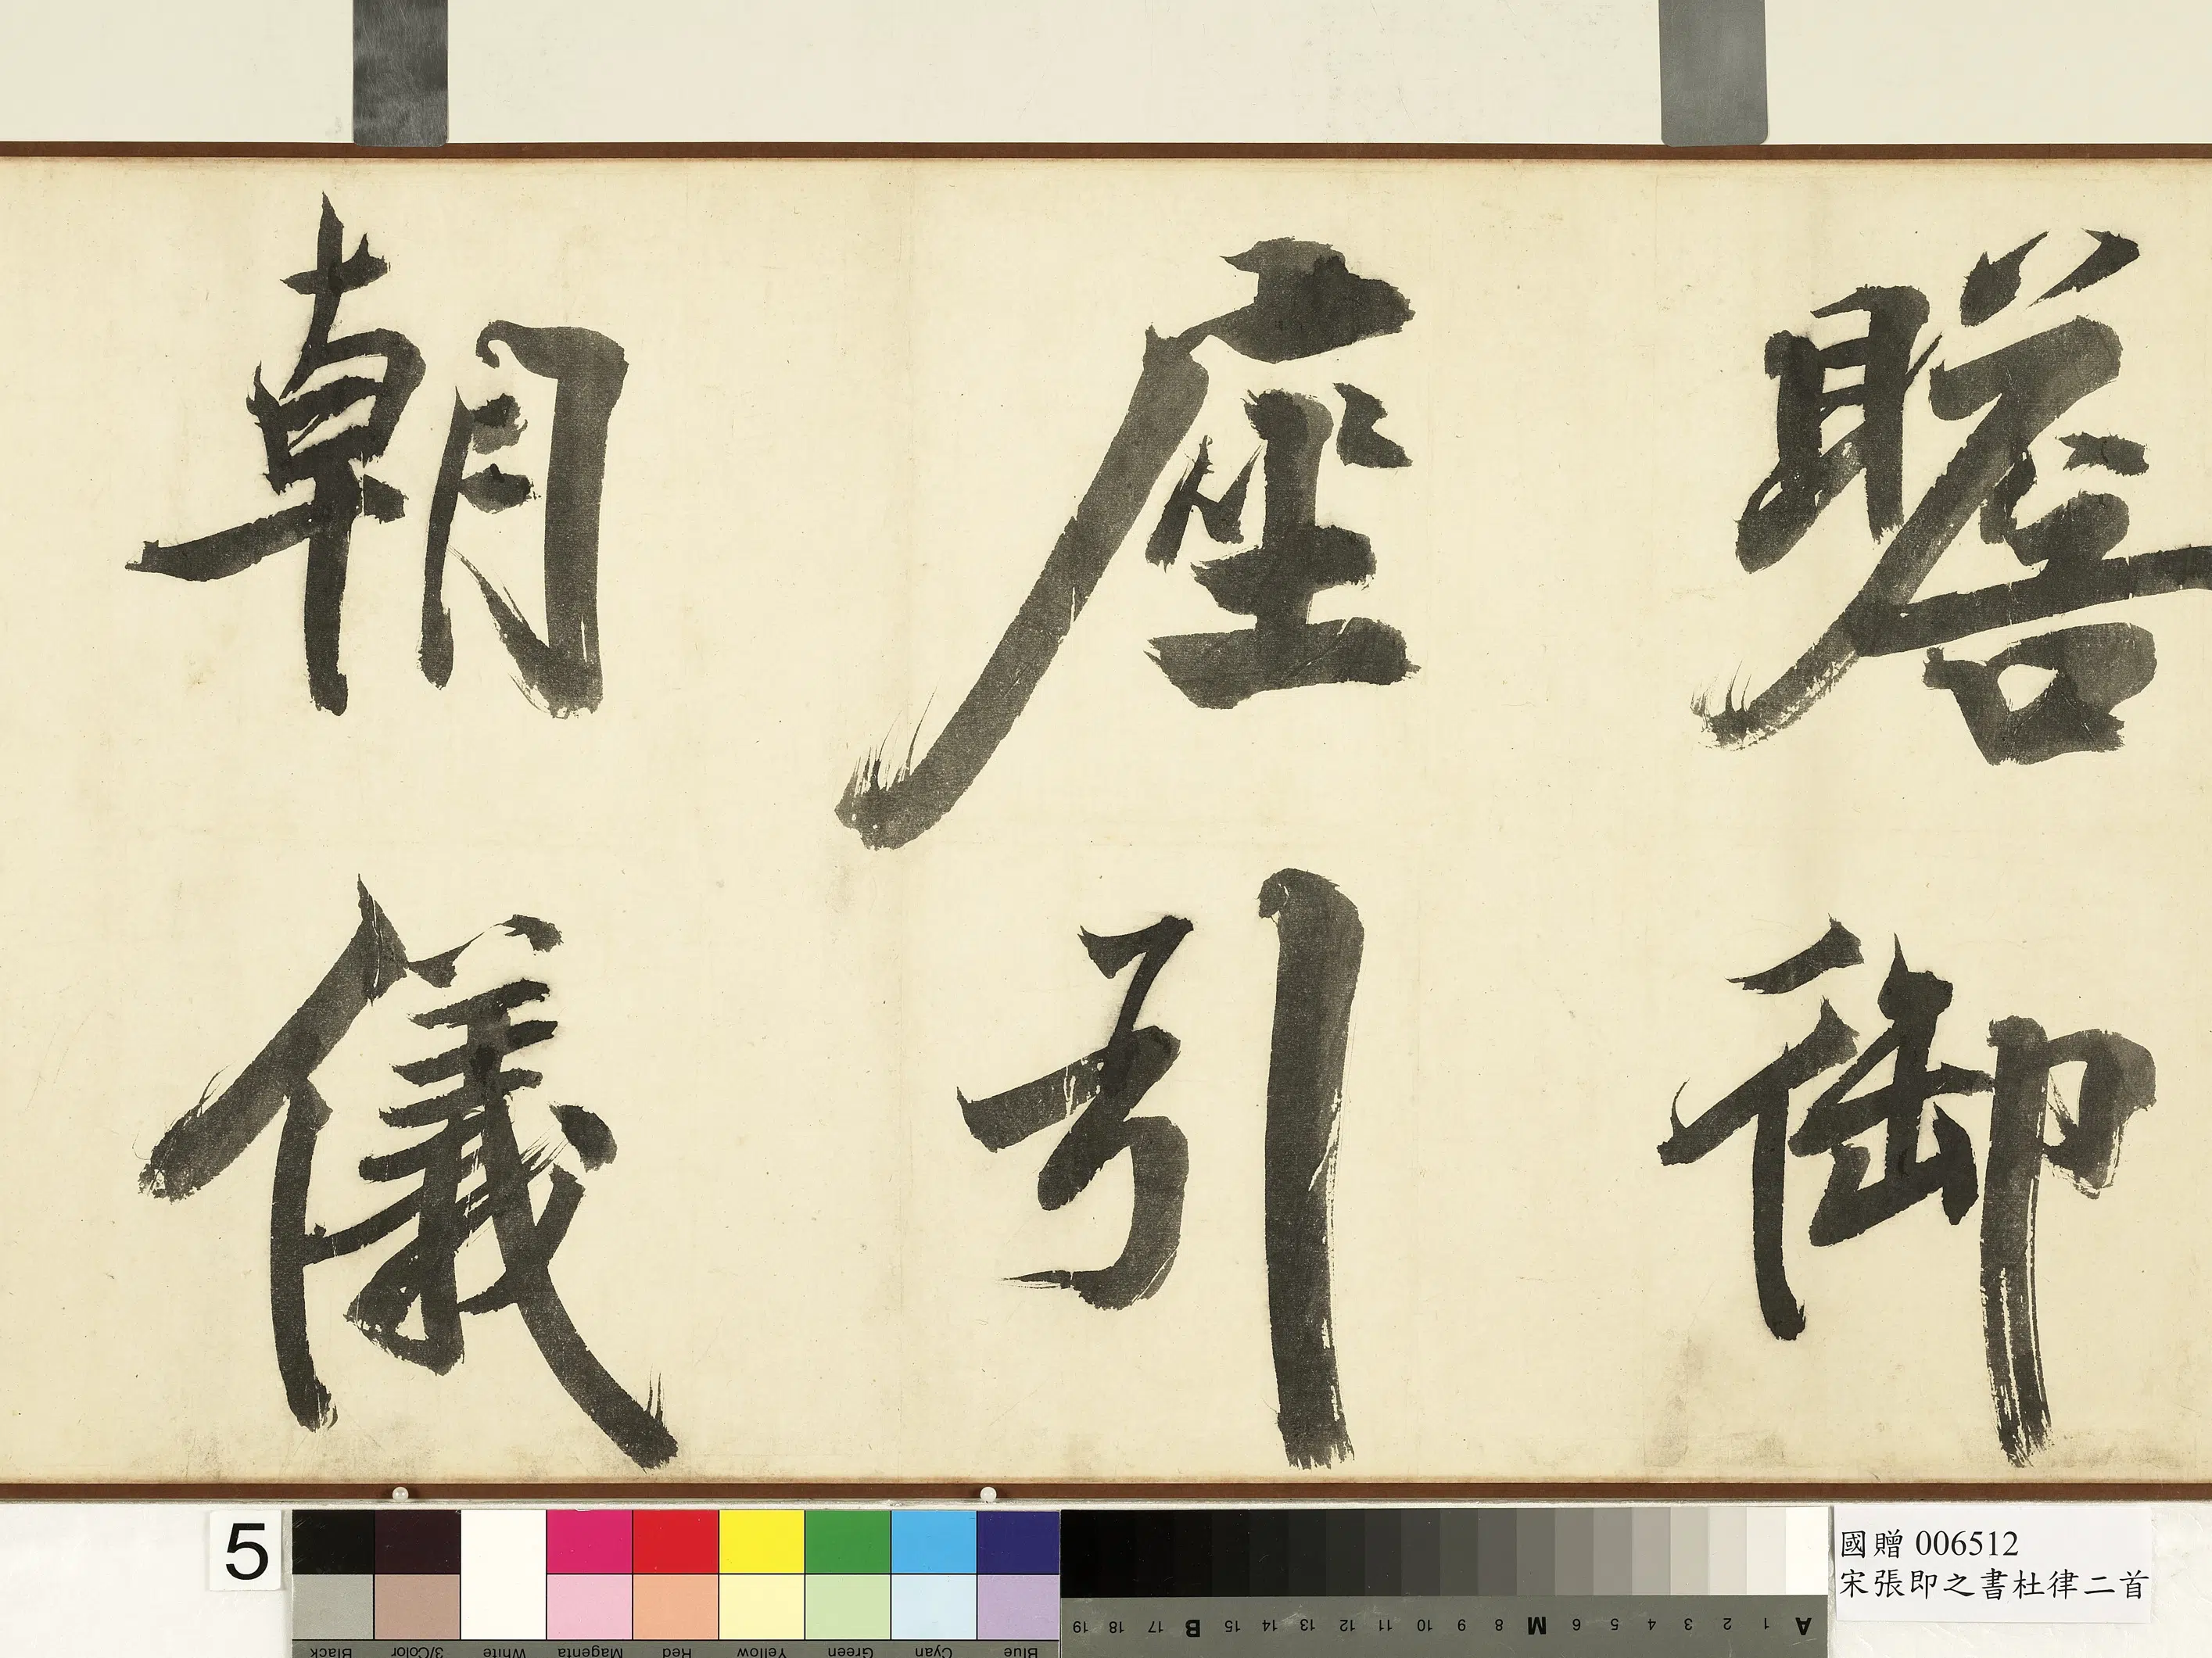 瞻御
座引
朝儀
5
國贈 006512
宋張即之書杜律二首
Black 3/Color White Magenta Red Yellow Green Cyan Blue
19 18 17 B 15 14 13 12 11 10 9 8 M 6 5 4 3 2 1 A